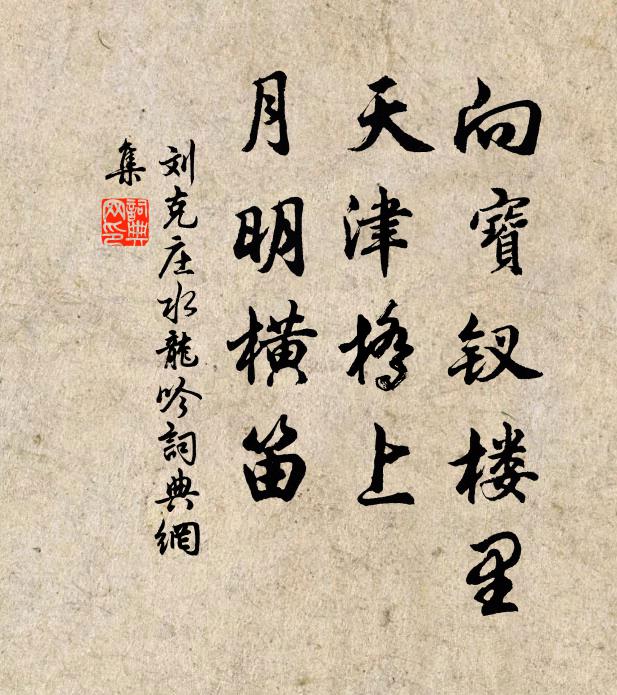 向寶钗楼里
天津橋上
月明横笛
刘克庄水龍吟詞典網
集
詞典网印